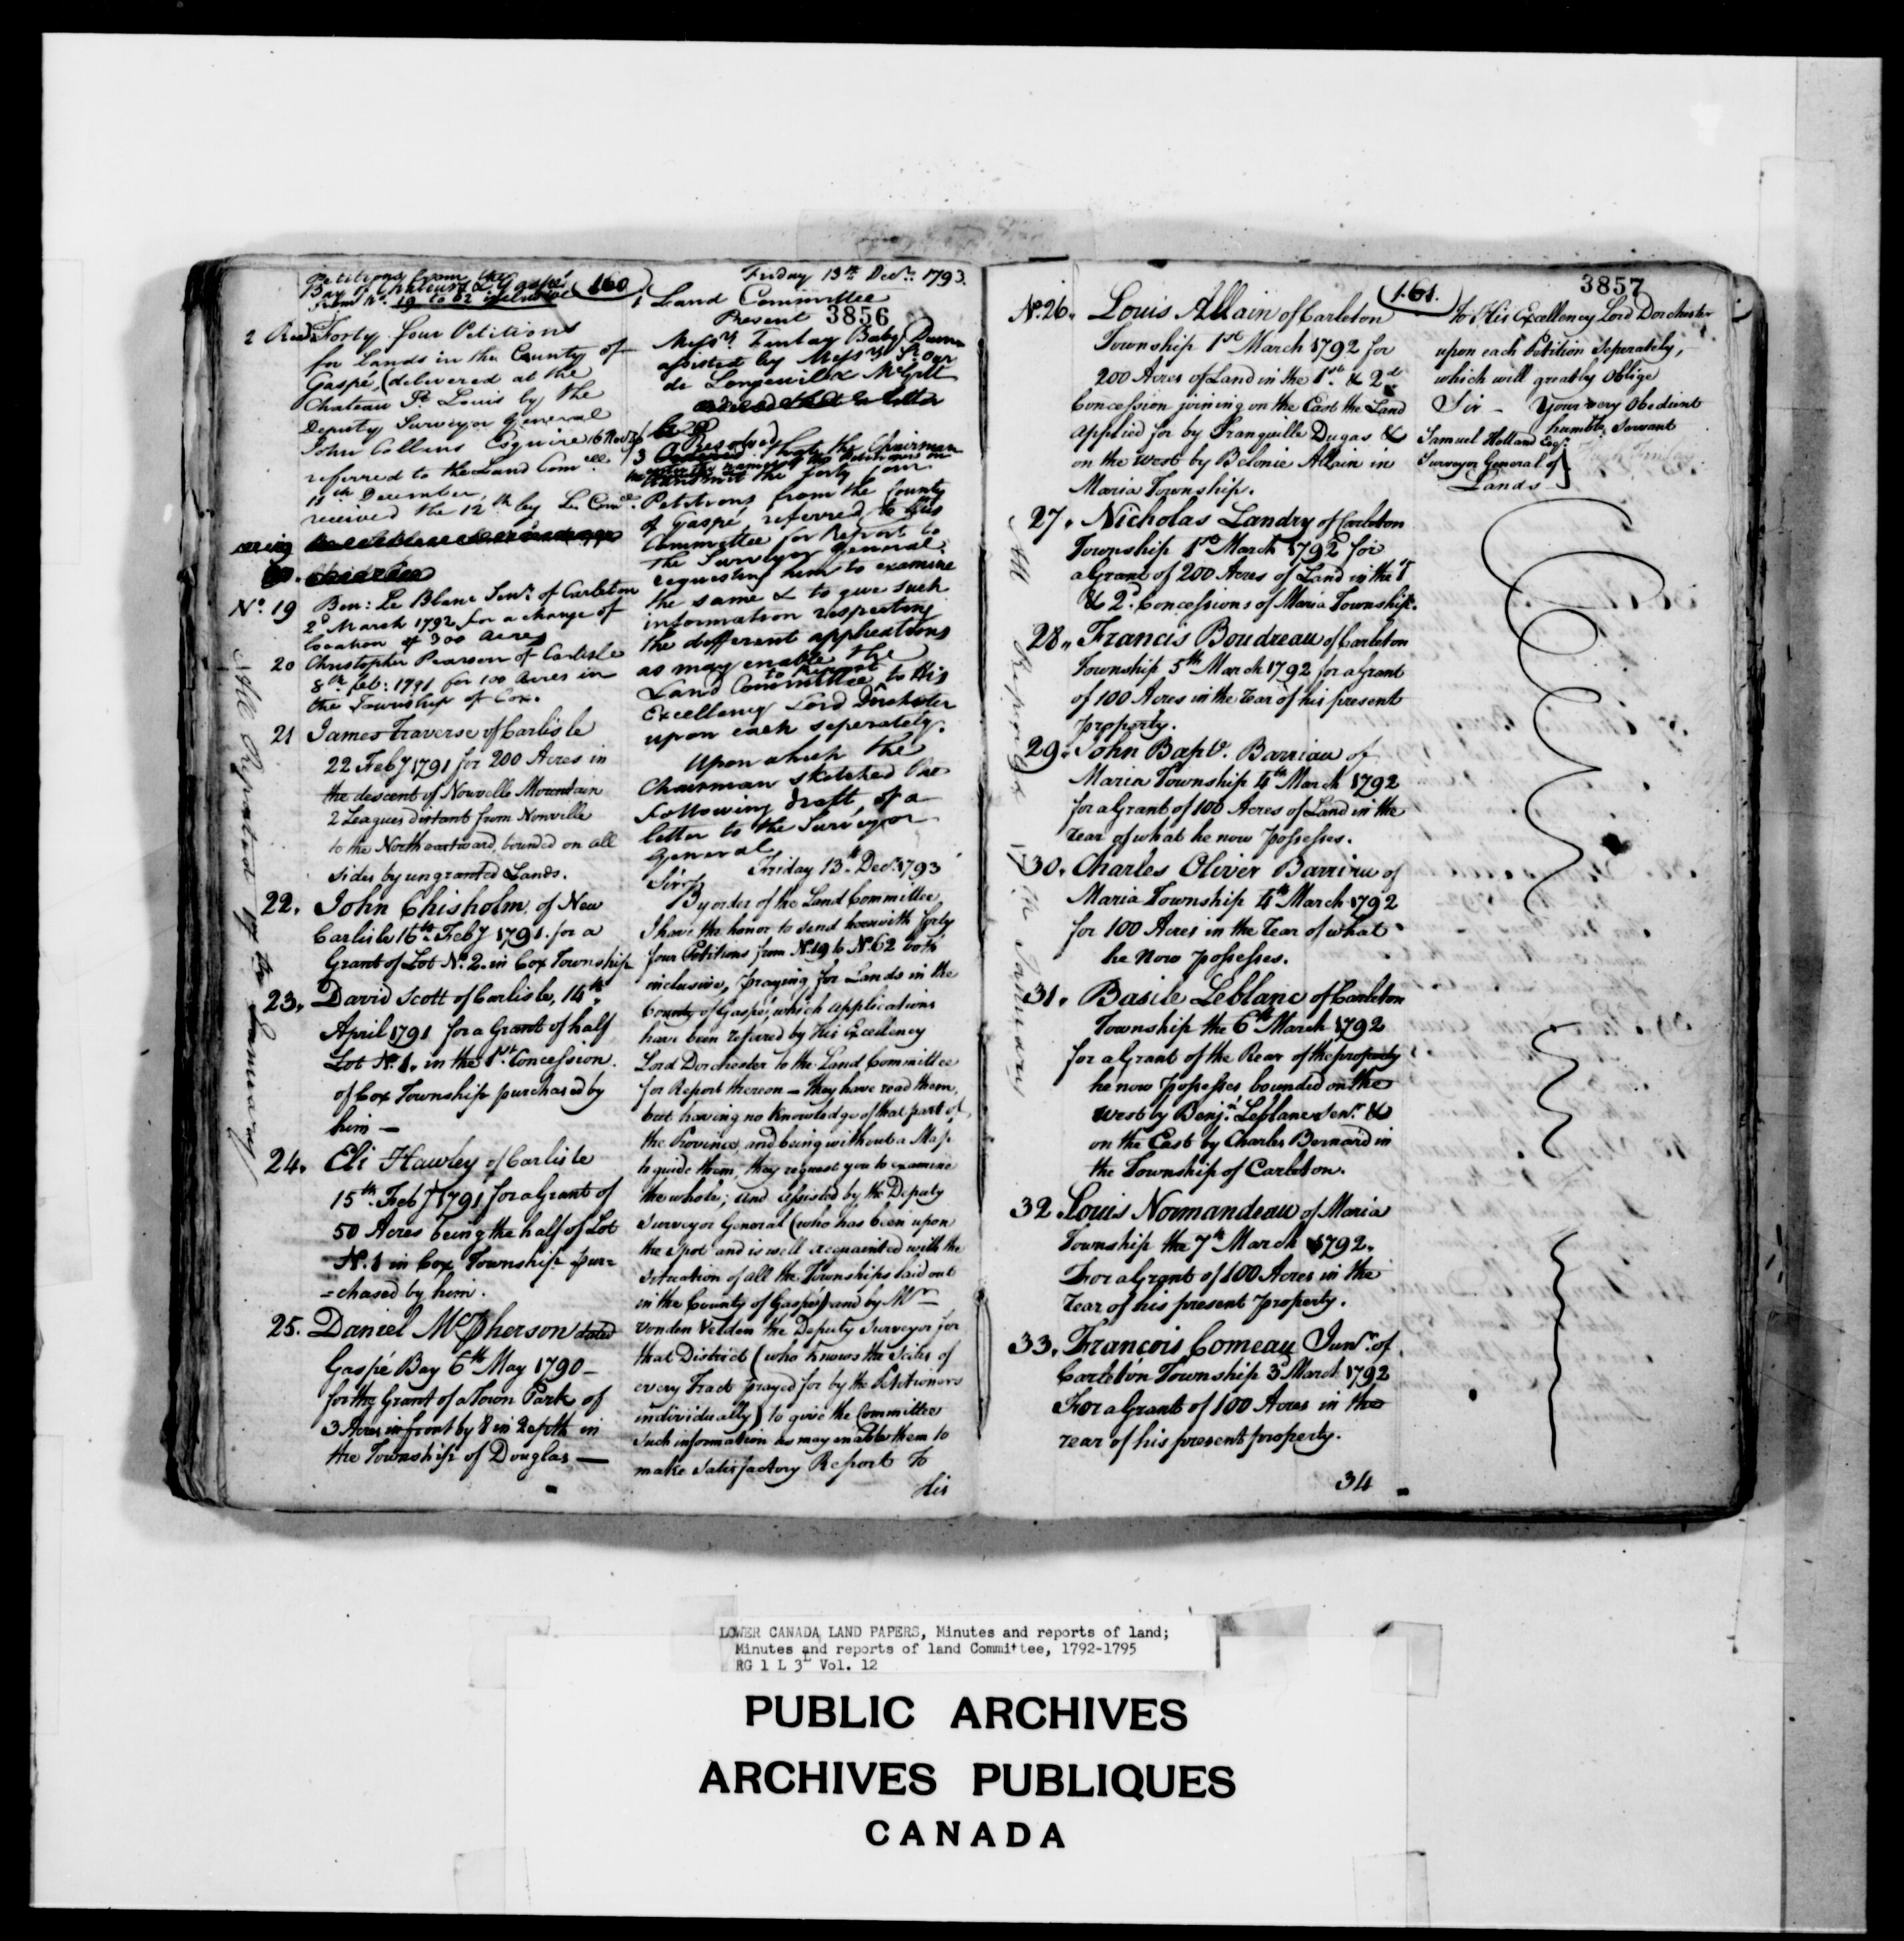 Petitions from the
Bay of Chaleurs & Gaspé
from No. 19 to 62 inclusive
160
2 Read Forty four Petitions
for Lands in the County of
Gaspé, (delivered at the
Chateau St. Louis by the
Deputy Surveyor General
John Collins Esquire 16 Nov
referred to the Land Com
11th December,
received the 12th by Ld. Com
No. 19 Ben: Le Blanc Senr. of Carleton
2d March 1792 for a change of
location of 300 acres
20 Christopher Pearson of Carlisle
8th Feb: 1791 for 100 acres in
the Township of Cox.
21 James Traverse of Carlisle
22 Feby 1791 for 200 Acres in
the descent of Nouvelle Mountain
2 Leagues distant from Nouville
to the North eastward, bounded on all
sides by ungranted Lands.
22. John Chisholm of New
Carlisle 16th Feby 1791. for a
Grant of Lot No. 2. in Cox Township
23. David Scott of Carlisle, 14th
April 1791 for a Grant of half
Lot No. 1. in the 1st. Concession
of Cox Township purchased by
him —
24. Eli Hawley of Carlisle
15th Feby 1791 for a Grant of
50 Acres being the half of Lot
No. 1 in Cox Township pur=
=chased by him.
25. Daniel McPherson dated
Gaspé Bay 6th May 1790 —
for the Grant of a Town Park of
3 Acres in front by 8 in Depth in
the Township of Douglas —
All Reported 17th January
Friday 13th Decr. 1793.
1 Land Committee
Present 3856
Messrs. Finlay Baby Dunn
assisted by Messrs. St. Our
de Longueuil & McGill
3 Resolved that the Chairman
transmit the forty four
Petitions from the County
of Gaspé, referred to this
Committee for Report to
the Surveyor General.
requesting him to examine
the same & to give such
information respecting
the different applications
as may enable the
Land Committee to Report to His
Excellency Lord Dorchester
upon each seperately.
Upon which the
Chairman sketched the
following draft, of a
letter to the Surveyor
General
Friday 13th Decr. 1793
Sir
By order of the Land Committee
I have the honor to send herewith forty
four Petitions from No. 19 to No. 62 both
inclusive, praying for Lands in the
County of Gaspé, which applications
have been referred by His Excellency
Lord Dorchester to the Land Committee
for Report thereon — they have read them,
but having no knowledge of that part of
the Province and being without a Map
to guide them, they request you to examine
the whole; and assisted by the Deputy
Surveyor General (who has been upon
the spot and is well acquainted with the
situation of all the Townships laid out
in the County of Gaspé) and by Mr.
vonden Velden the Deputy Surveyor for
that District (who knows the Scites of
every Tract prayed for by the Petitioners
individually) to give the Committee
such information as may enable them to
make satisfactory Report to
His
161.
3857
No. 26. Louis Allain of Carleton
Township 1st March 1792 for
200 Acres of Land in the 1st. & 2d
Concession joining on the East the Land
applied for by Tranquille Dugas &
on the West by Belonie Allain in
Maria Township.
27. Nicholas Landry of Carleton
Township 1st March 1792 for
a Grant of 200 Acres of Land in the 1st
& 2d. Concessions of Maria Township.
28. Francis Boudreau of Carleton
Township 5th March 1792 for a Grant
of 100 Acres in the rear of his present
property.
29. John Bapte. Barriau of
Maria Township 4th March 1792
for a Grant of 100 Acres of Land in the
rear of what he now possesses.
30. Charles Oliver Barriau of
Maria Township 4th March 1792
for 100 Acres in the rear of what
he now possesses.
31. Basile Leblanc of Carleton
Township the 6th March 1792
for a Grant of the Rear of the property
he now possesses bounded on the
west by Benj. Leblanc Senr. &
on the East by Charles Bernard in
the Township of Carleton.
32. Louis Normandeau of Maria
Township the 7th March 1792.
For a Grant of 100 Acres in the
rear of his present property.
33. François Comeau Junr. of
Carleton Township 3d March 1792
For a Grant of 100 Acres in the
rear of his present property.
34
All Reported 17th January
To His Excellency Lord Dorchester
upon each Petition Seperately,
which will greatly oblige
Sir — Your very obedient
humble Servant
Samuel Holland Esqr.
Surveyor General of
Lands
Hugh Finlay
LOWER CANADA LAND PAPERS, Minutes and reports of land;
Minutes and reports of land Committee, 1792-1795
RG 1 L 3L Vol. 12
PUBLIC ARCHIVES
ARCHIVES PUBLIQUES
CANADA